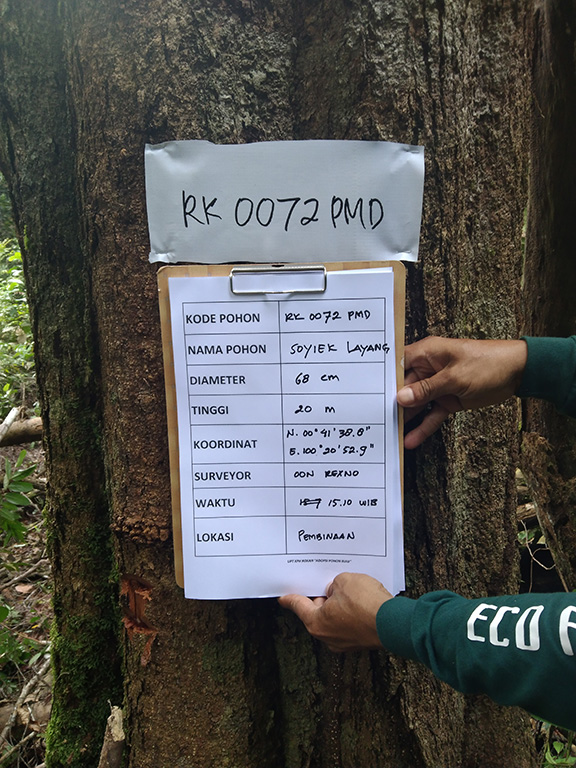 RK 0072 PMD
KODE POHON RK 0072 PMD
NAMA POHON SOYIEK LAYANG
DIAMETER 68 cm
TINGGI 20 m
KOORDINAT N. 00° 41' 38.8"
E. 100° 20' 52.9"
SURVEYOR OON REXNO
WAKTU 15.10 WIB
LOKASI PEMBINAAN
ECO